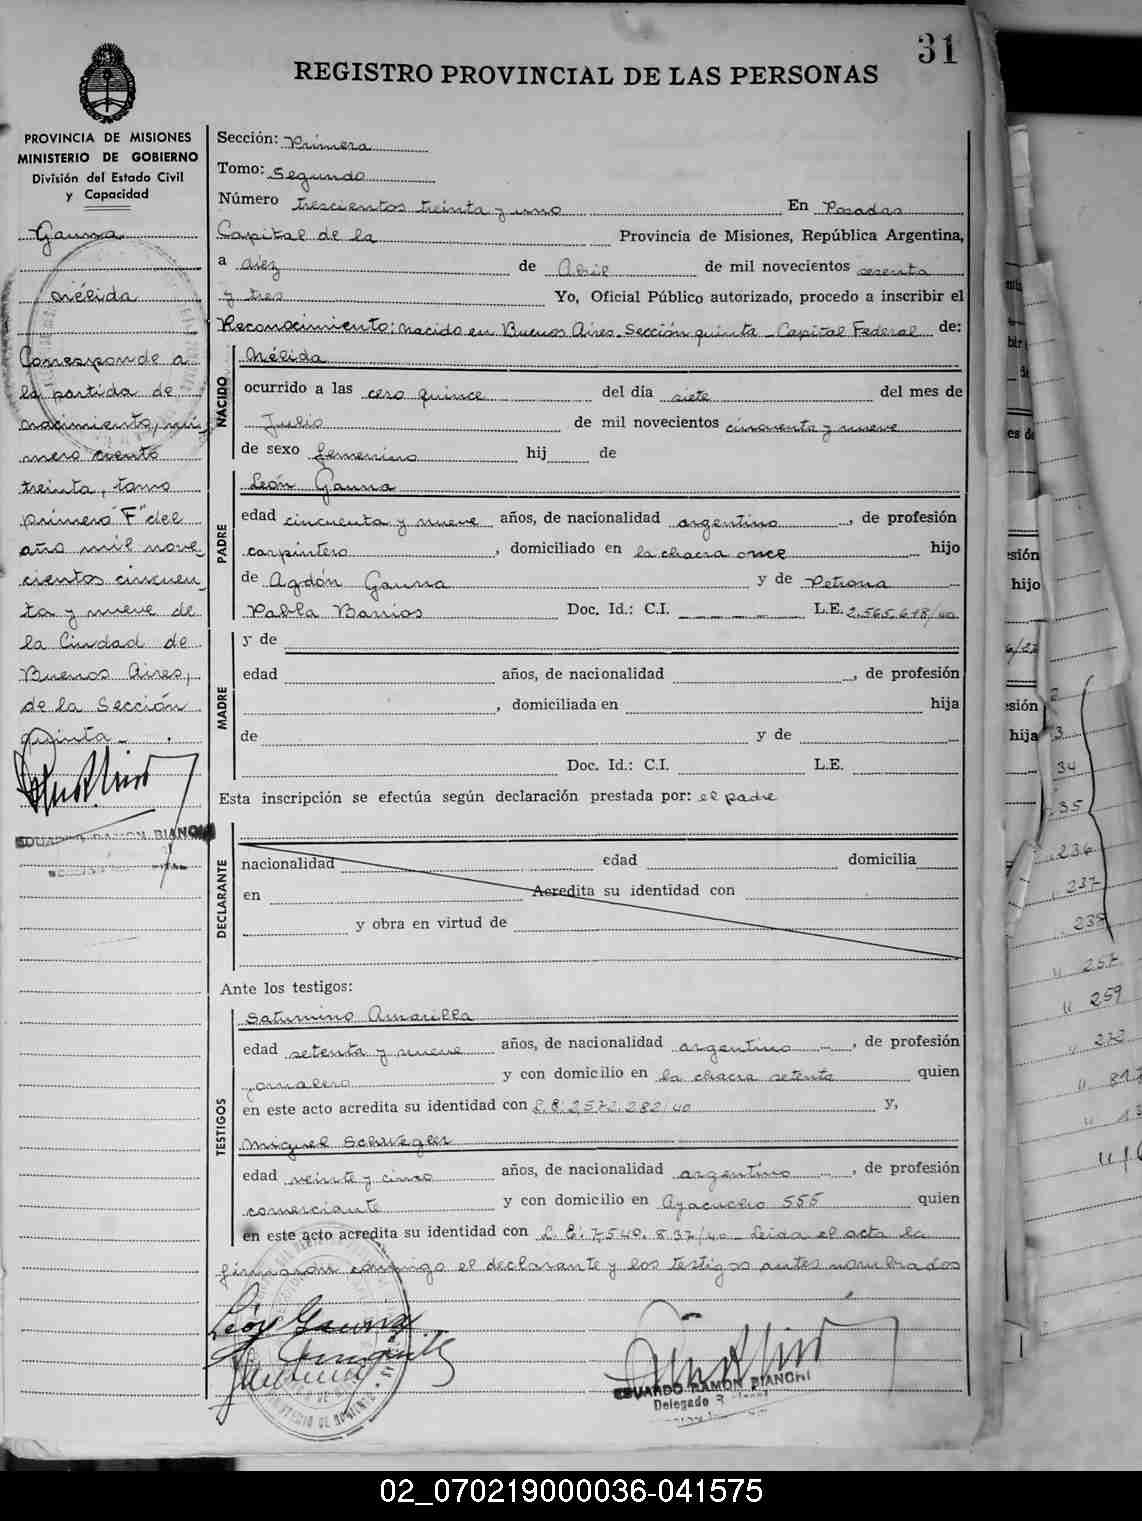 31
REGISTRO PROVINCIAL DE LAS PERSONAS
PROVINCIA DE MISIONES
MINISTERIO DE GOBIERNO
División del Estado Civil
y Capacidad
Gauna
Nélida
Corresponde a
la partida de
nacimiento, nú-
mero ciento
treinta, tomo
primero "F" del
año mil nove-
cientos cincuen-
ta y nueve de
la Ciudad de
Buenos Aires,
de la Sección
quinta
EDUARDO RAMON BIANCHI
Sección: Primera
Tomo: Segundo
Número trescientos treinta y uno En Posadas
Capital de la Provincia de Misiones, República Argentina,
a diez de Abril de mil novecientos sesenta
y tres Yo, Oficial Público autorizado, procedo a inscribir el
Reconocimiento: nacido en Buenos Aires. Sección quinta - Capital Federal de:
NACIDO
Nélida
ocurrido a las cero quince del día siete del mes de
Julio de mil novecientos cincuenta y nueve
de sexo femenino hij de
PADRE
León Gauna
edad cincuenta y nueve años, de nacionalidad argentino, de profesión
carpintero, domiciliado en la chacra once hijo
de Agdón Gauna y de Petrona
Pabla Barrios Doc. Id.: C.I. L.E. 2.565.618/40
MADRE
y de
edad años, de nacionalidad , de profesión
, domiciliada en hija
de y de
Doc. Id.: C.I. L.E.
Esta inscripción se efectúa según declaración prestada por: el padre
DECLARANTE
nacionalidad edad domicilia
en Acredita su identidad con
y obra en virtud de
Ante los testigos:
TESTIGOS
Saturnino Amarilla
edad setenta y nueve años, de nacionalidad argentino, de profesión
jornalero y con domicilio en la chacra setenta quien
en este acto acredita su identidad con L.E. 2572.282/40 y,
Miguel Schwegler
edad veinte y cinco años, de nacionalidad argentino, de profesión
comerciante y con domicilio en Ayacucho 555 quien
en este acto acredita su identidad con L.E. 7.540.837/40 - Leída el acta la
firmaron conmigo el declarante y los testigos antes nombrados
León Gauna
EDUARDO RAMON BIANCHI
Delegado
sión
hijo
sión
hija
34
35
236
237
238
257
259
02_070219000036-041575